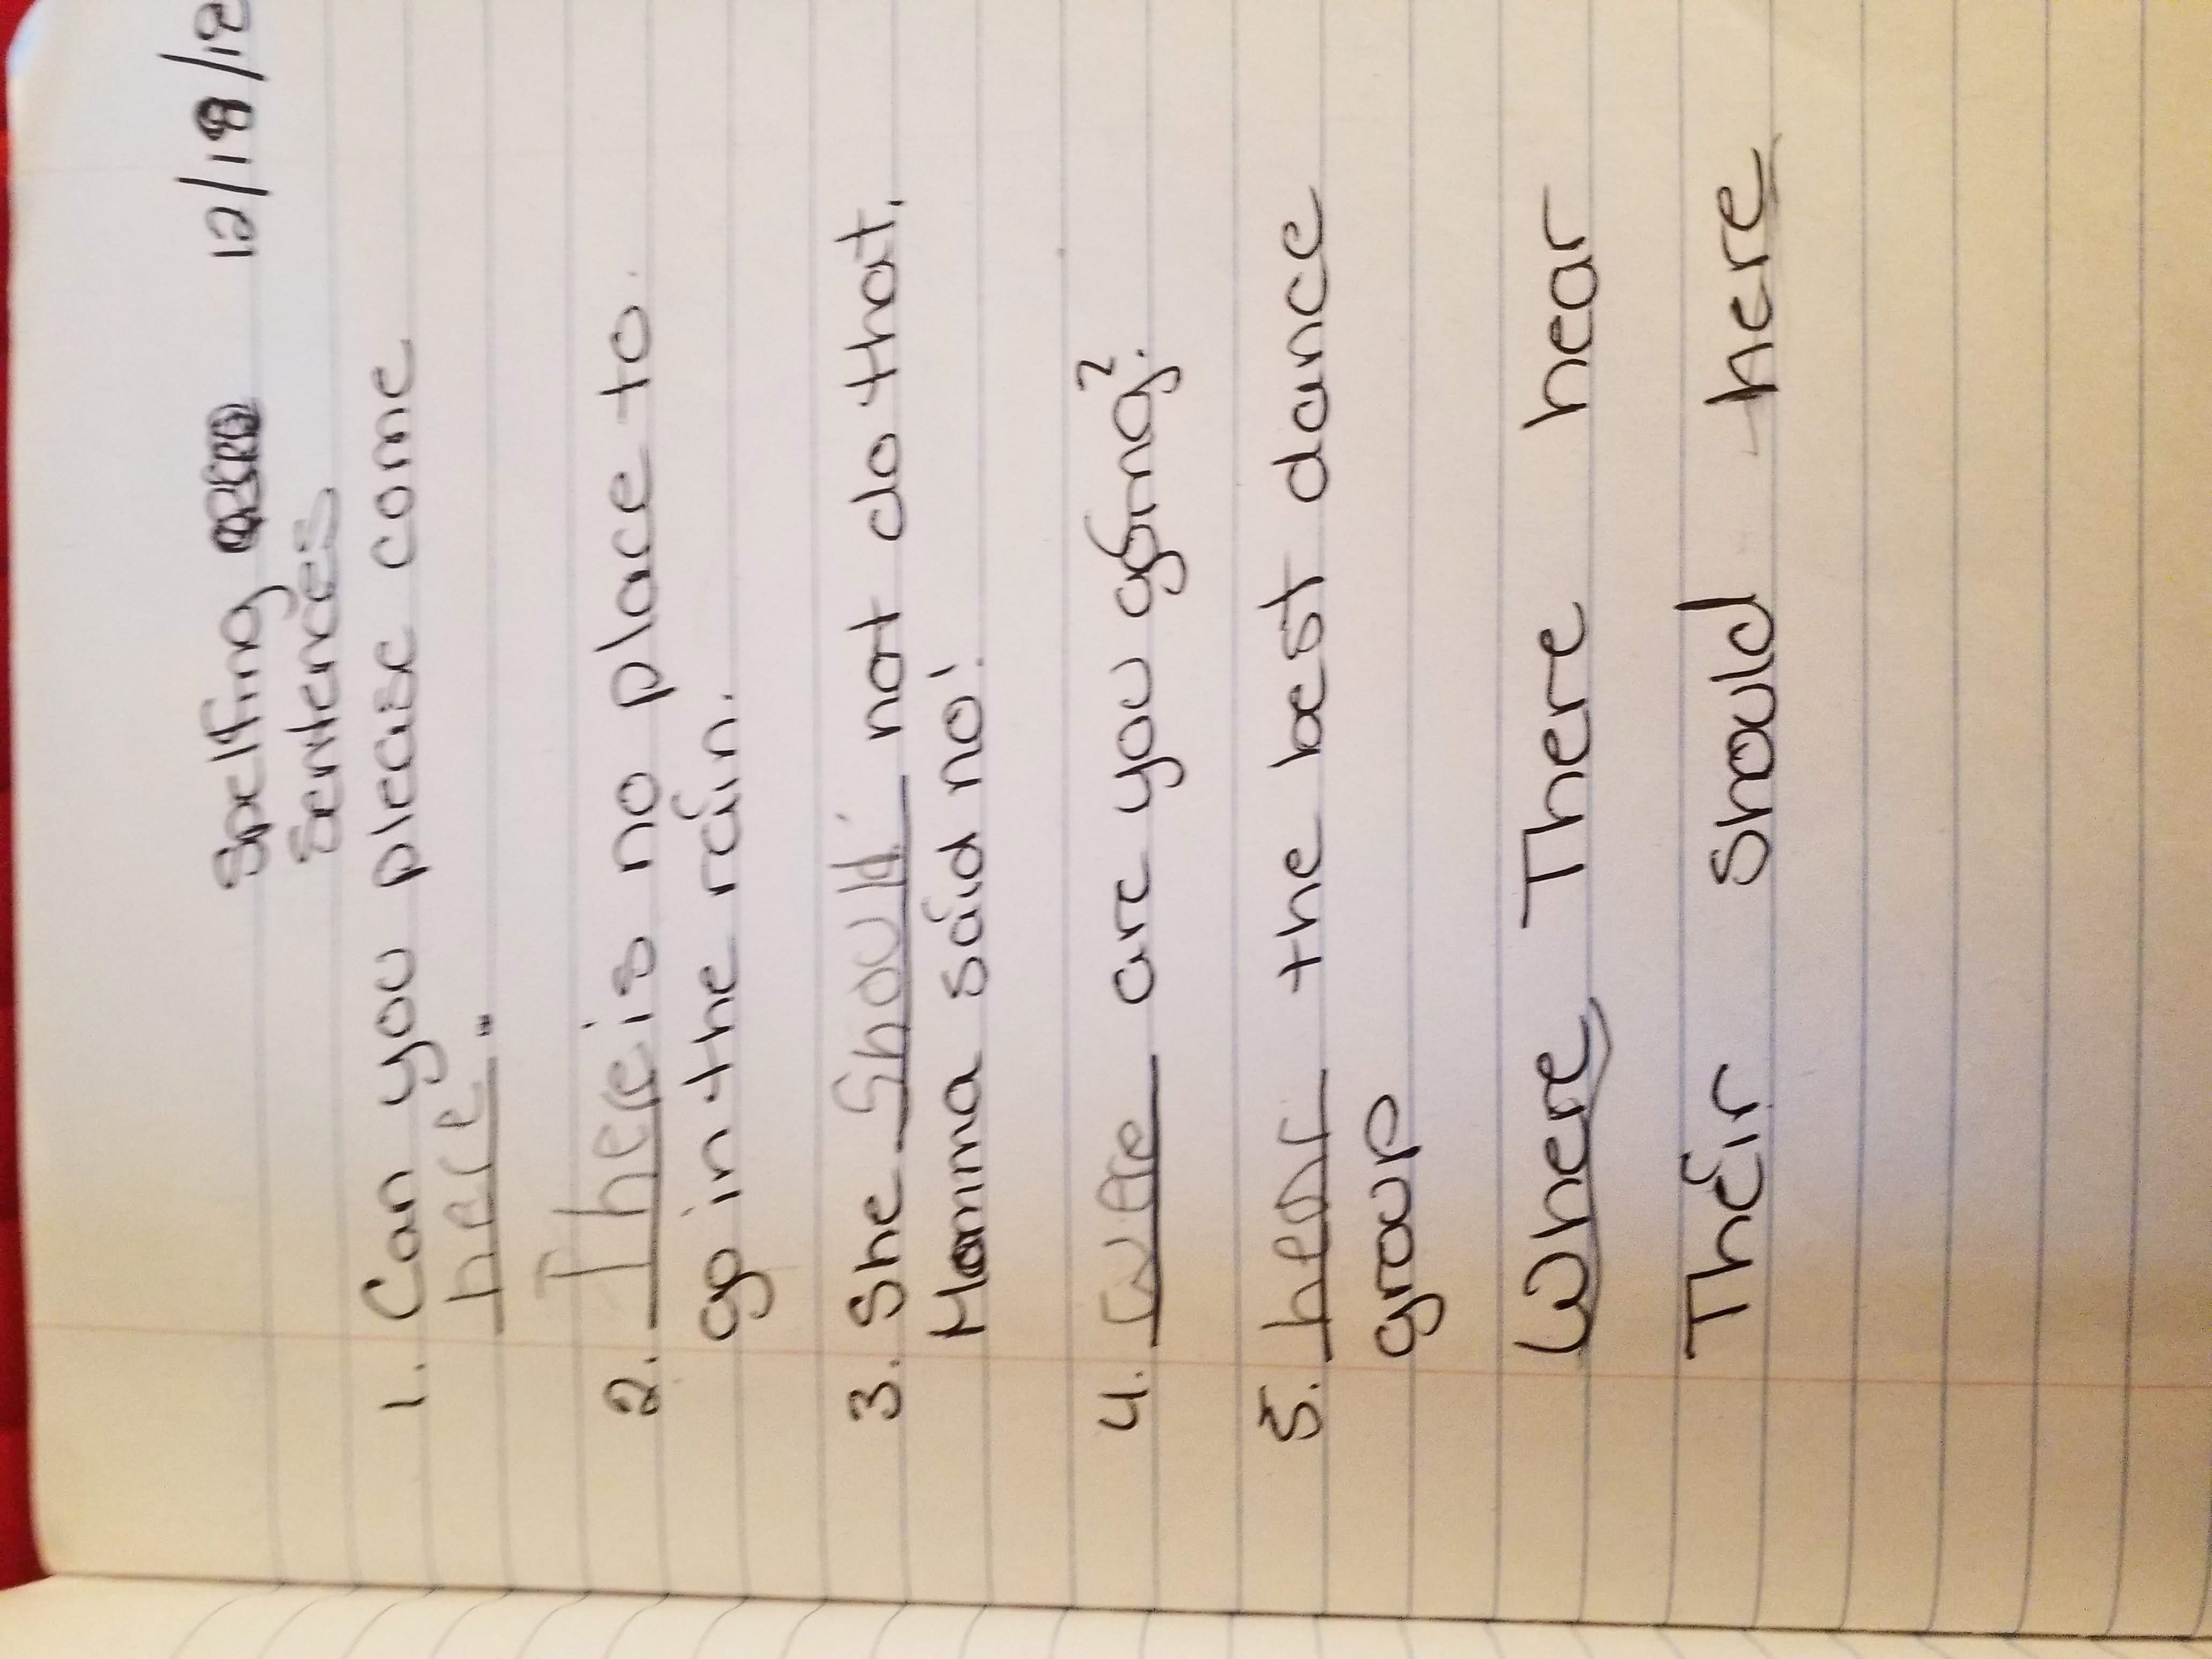 Spelling 12/18/18
Sentences
1. Can you please come
here.
2. There is no place to.
go in the rain.
3. She Should not do that.
Momma said no!
4. are you going?
5. hear the best dance
group
Where There hear
Their Should here